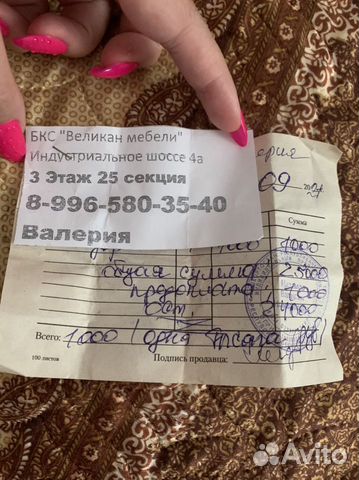 БКС "Великан мебели"
Индустриальное шоссе 4а
3 Этаж 25 секция
8-996-580-35-40
Валерия
09 20
Сумма
1000 1000
общая сумма 25000
предоплата 1000
ост. 24000
Всего: 1000 (одна тысяча руб)
100 листов Подпись продавца:
Avito